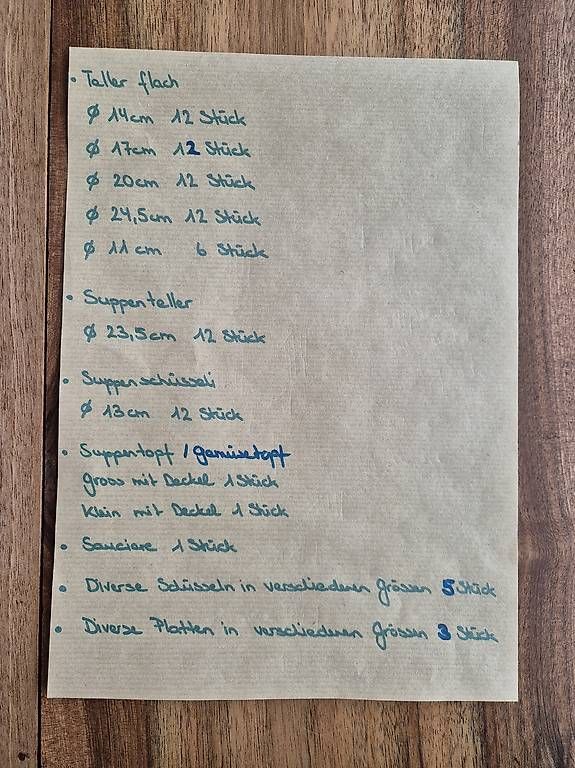 • Teller flach
Ø 14cm 12 Stück
Ø 17cm 12 Stück
Ø 20cm 12 Stück
Ø 24,5cm 12 Stück
Ø 11cm 6 Stück
• Suppenteller
Ø 23,5cm 12 Stück
• Suppenschüsseli
Ø 13cm 12 Stück
• Suppentopf / Gemüsetopf
gross mit Deckel 1 Stück
klein mit Deckel 1 Stück
• Sauciere 1 Stück
• Diverse Schüsseln in verschiedenen Grössen 5 Stück
• Diverse Platten in verschiedenen Grössen 3 Stück